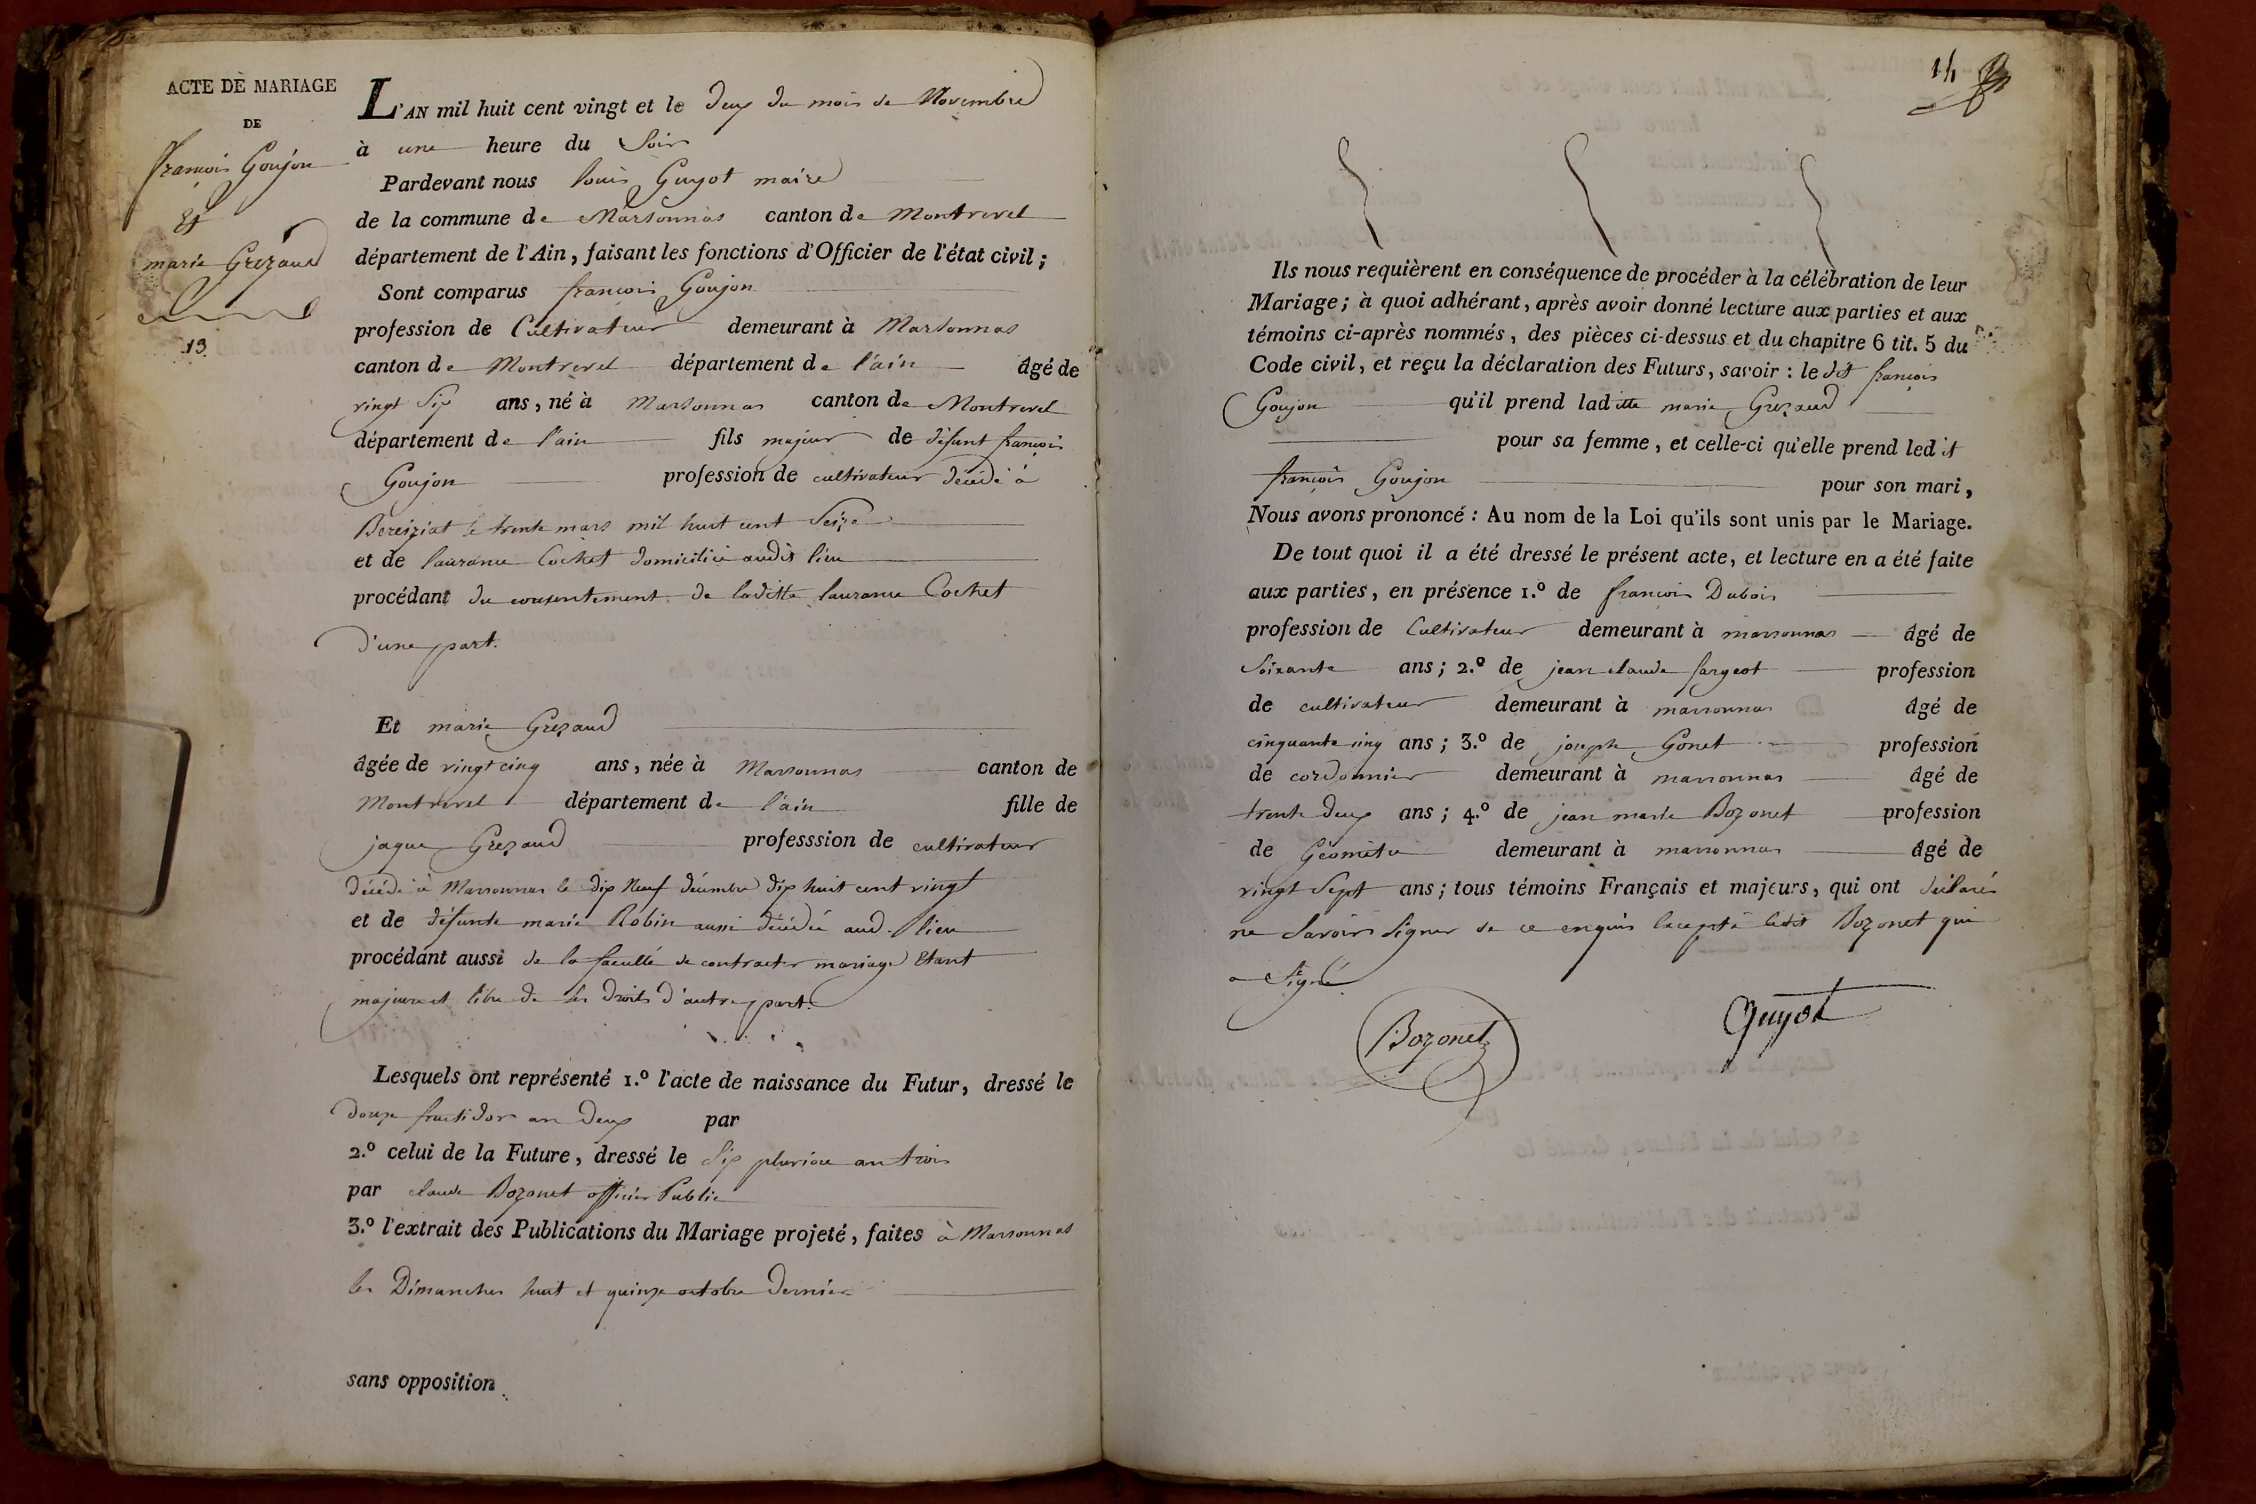 ACTE DE MARIAGE
DE
francois Goujon
Et
marie Grezaud
13
L'AN mil huit cent vingt et le deux du mois de Novembre
à une heure du Soir
Pardevant nous louis Guyot maire
de la commune de Marsonnas canton de Montrevel
département de l'Ain, faisant les fonctions d'Officier de l'état civil;
Sont comparus francois Goujon
profession de Cultivateur demeurant à Marsonnas
canton de Montrevel département de l'ain âgé de
vingt Six ans, né à Marsonnas canton de Montrevel
département de l'ain fils majeur de défunt francois
Goujon profession de cultivateur décédé à
Bereiziat le trente mars mil huit cent Seize
et de laurance Cochet domiciliée audit lieu
procédant du consentement de laditte laurance Cochet
d'une part.
Et marie Grezaud
âgée de vingt cinq ans, née à Marsonnas canton de
Montrevel département de l'ain fille de
jaque Grezaud professsion de cultivateur
décédé à Marsonnas le dix Neuf décembre dix huit cent vingt
et de défunte marie Robin aussi décédée aud. lieu
procédant aussi de la faculté de contracter mariage Etant
majeure et libre de ses droits d'autre part.
Lesquels ont représenté 1.º l'acte de naissance du Futur, dressé le
douze fructidor an deux par
2.º celui de la Future, dressé le Six pluviose an trois
par claude Bozonet officier Public
3.º l'extrait des Publications du Mariage projeté, faites à Marsonnas
les Dimanches huit et quinze octobre dernier
sans opposition.
14
Ils nous requièrent en conséquence de procéder à la célébration de leur
Mariage; à quoi adhérant, après avoir donné lecture aux parties et aux
témoins ci-après nommés, des pièces ci-dessus et du chapitre 6 tit. 5 du
Code civil, et reçu la déclaration des Futurs, savoir : le dit francois
Goujon qu'il prend laditte marie Grezaud
pour sa femme, et celle-ci qu'elle prend ledit
francois Goujon pour son mari,
Nous avons prononcé : Au nom de la Loi qu'ils sont unis par le Mariage.
De tout quoi il a été dressé le présent acte, et lecture en a été faite
aux parties, en présence 1.º de francois Dubois
profession de Cultivateur demeurant à marsonnas âgé de
Soixante ans; 2.º de jean claude fargeot profession
de cultivateur demeurant à marsonnas âgé de
cinquante cinq ans; 3.º de joseph Gonet profession
de cordonnier demeurant à marsonnas âgé de
trente deux ans; 4.º de jean marie Bozonet profession
de Géometre demeurant à marsonnas âgé de
vingt Sept ans; tous témoins Français et majeurs, qui ont déclarés
ne Savoir Signer de ce enquis Excepté ledit Bozonet qui
a Signé
Bozonet Guyot